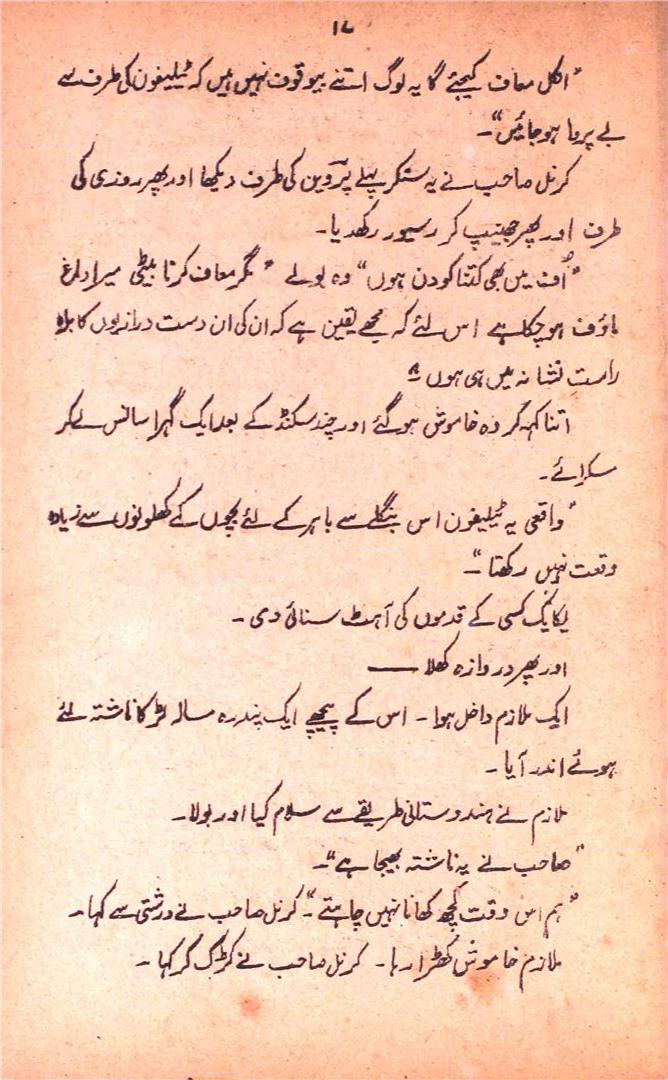 ۱۷
"انکل معاف کیجئے گا یہ لوگ اتنے بیوقوف نہیں ہیں کہ ٹیلیفون کی طرف سے
بے پروا ہو جائیں"۔
کرنل صاحب نے یہ سنکر پہلے پروین کی طرف دیکھا اور پھر روزی کی
طرف اور پھر جھینپ کر رسیور رکھدیا۔
"اُف میں بھی کتنا کودن ہوں" وہ بولے "مگر معاف کرنا بیٹی میرا دماغ
ماؤف ہو چکا ہے اس لئے کہ مجھے یقین ہے کہ ان کی ان دست درازیوں کا براہ
راست نشانہ میں ہی ہوں"
اتنا کہہ کر وہ خاموش ہو گئے اور چند سکنڈ کے بعد ایک گہرا سانس لے کر
مسکرائے۔
"واقعی یہ ٹیلیفون اس بنگلے سے باہر کے لئے بچوں کے کھلونوں سے زیادہ
وقعت نہیں رکھتا"۔
یکایک کسی کے قدموں کی آہٹ سنائی دی۔
اور پھر دروازہ کھلا ——
ایک ملازم داخل ہوا۔ اس کے پیچھے ایک پندرہ سالہ لڑکا ناشتہ لئے
ہوئے اندر آیا۔
ملازم نے ہندوستانی طریقے سے سلام کیا اور بولا۔
"صاحب نے یہ ناشتہ بھیجا ہے"۔
"ہم اس وقت کچھ کھانا نہیں چاہتے"۔ کرنل صاحب نے درشتی سے کہا۔
ملازم خاموش کھڑا رہا۔ کرنل صاحب نے کڑک کر کہا۔